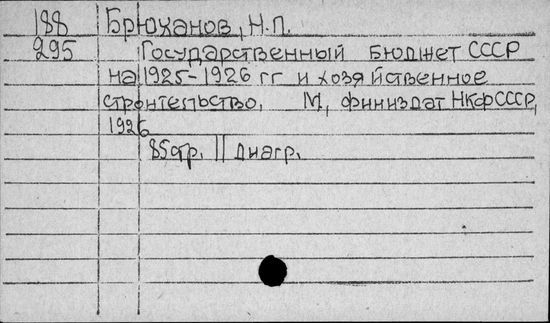 188 Брюханов, Н.П.
295 Государственный бюджет СССР
на 1925-1926 гг и хозяйственное
строительство. М, финиздат НКФСССР,
1926
85стр. 11 диагр.